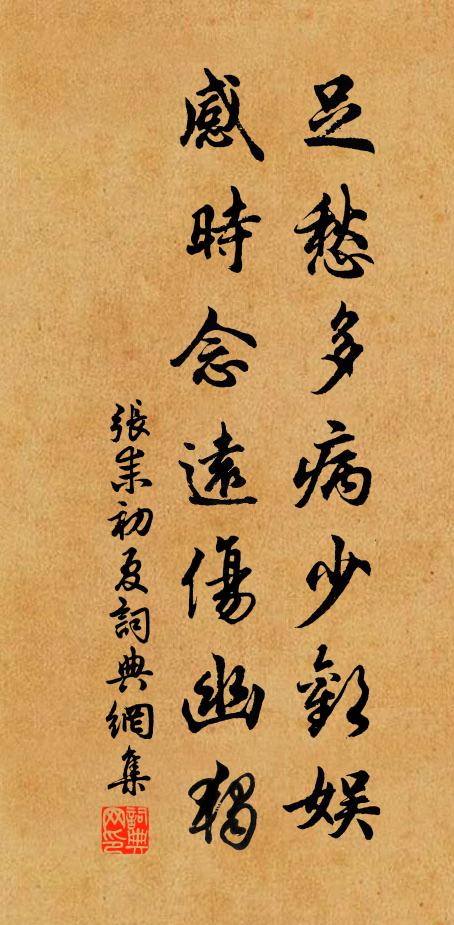 足愁多病少歡娛
感時念遠傷幽獨
張耒初夏詞典網集
詞典网印